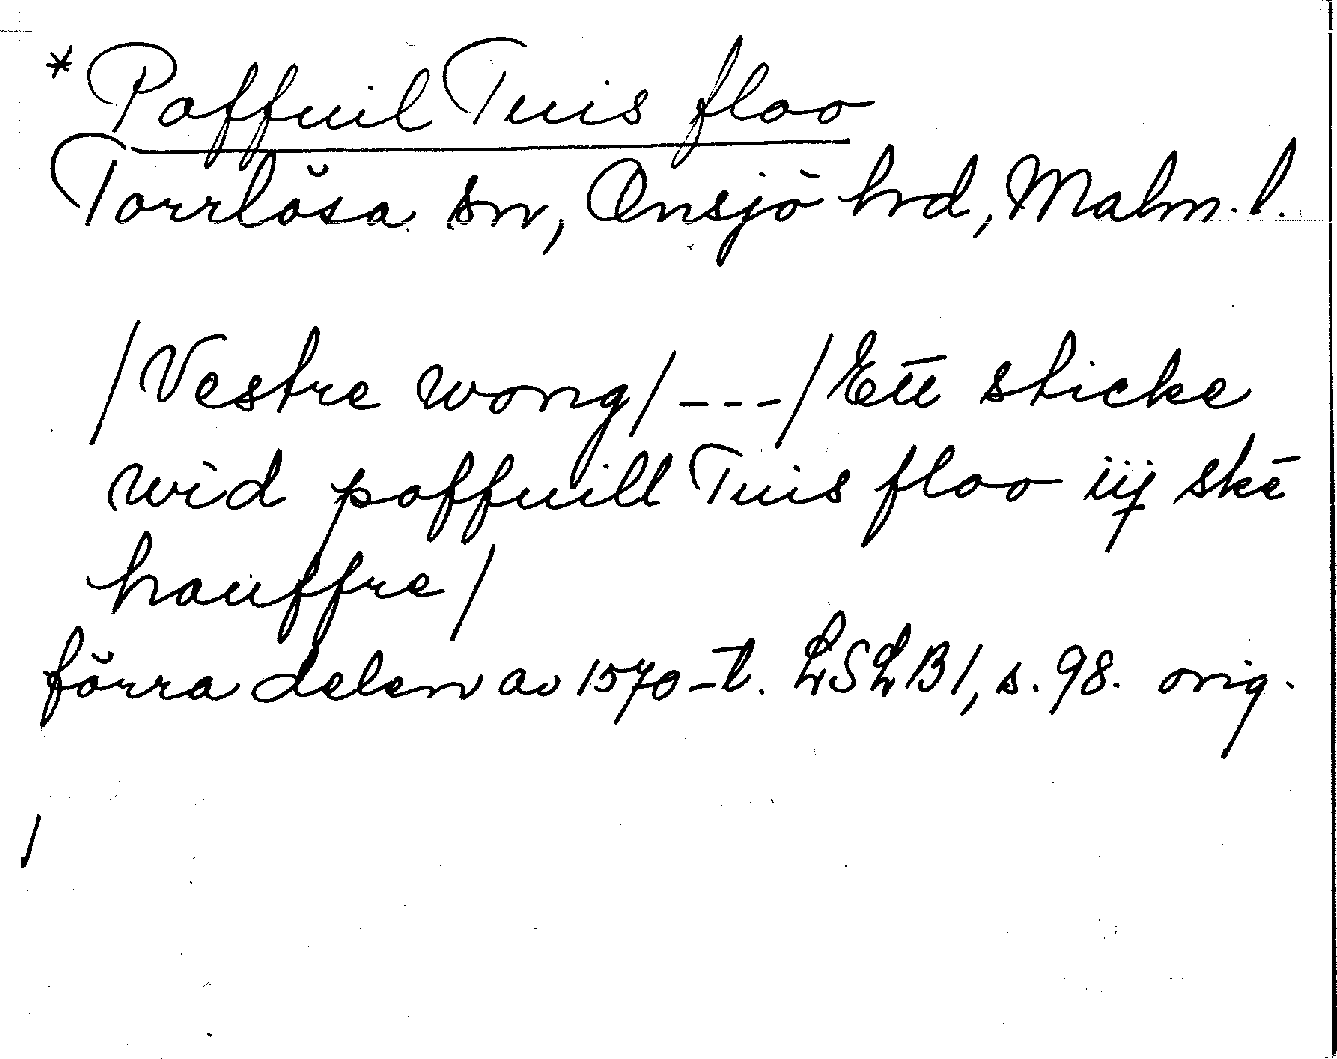 * Poffuil Tuis floo
Torrlösa sn, Onsjö hrd, Malm. l.
/Vestre wong/ --- /Ett sticke
wid poffuill Tuis floo iij skē
hauffre/
förra delen av 1570-t. LSLB1, s. 98. orig.
/